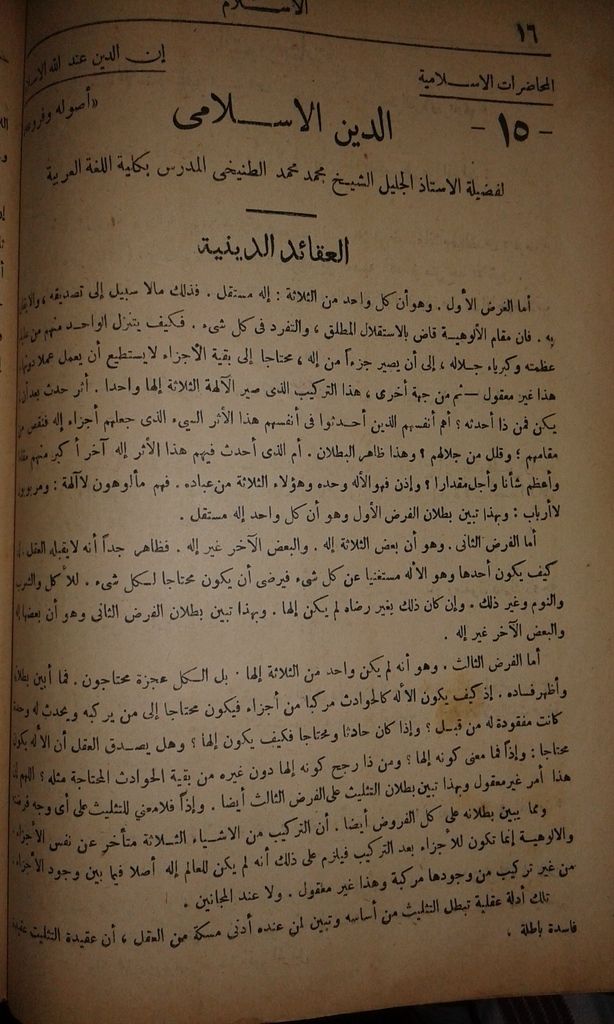 الاسلام
١٦
إن الدين عند الله الاسلام
المحاضرات الاسلامية
«أصوله وفروعه
- ١٥ - الدين الاسلامى
لفضيلة الاستاذ الجليل الشيخ محمد محمد الطنيخى المدرس بكلية اللغة العربية
العقائد الدينية
أما الفرض الأول . وهو أن كل واحد من الثلاثة : إله مستقل . فذلك مالا سبيل إلى تصديقه ،
به . فان مقام الألوهية قاض بالاستقلال المطلق ، والتفرد فى كل شىء . فكيف يتنزل الواحد منهم من
عظمته وكبرياء جلاله ، إلى أن يصير جزءاً من إله ، محتاجا إلى بقية الأجزاء لا يستطيع أن يعمل عملا دونها
هذا غير معقول — ثم من جهة أخرى ، هذا التركيب الذى صير الآلهة الثلاثة إلها واحدا . أثر حدث بعد أن
يكن فمن ذا أحدثه ؟ أهم أنفسهم الذين أحدثوا فى أنفسهم هذا الأثر السيء الذى جعلهم أجزاء إله فنقص من
مقامهم ؛ وقلل من جلالهم ؟ وهذا ظاهر البطلان . أم الذى أحدث فيهم هذا الأثر إله آخر أكبر منهم
وأعظم شأنا وأجل مقدارا ؟ وإذن فهو الأله وحده وهؤلاء الثلاثة من عباده . فهم مألوهون لا آلهة : ومربوبون
لا أرباب : وبهذا تبين بطلان الفرض الأول وهو أن كل واحد إله مستقل .
أما الفرض الثانى . وهو أن بعض الثلاثة إله . والبعض الآخر غير إله . فظاهر جداً أنه لا يقبله العقل .
كيف يكون أحدها وهو الأله مستغنيا عن كل شىء فيرضى أن يكون محتاجا لكل شىء . للأكل والشرب
والنوم وغير ذلك . وإن كان ذلك بغير رضاه لم يكن إلها . وبهذا تبين بطلان الفرض الثانى وهو أن بعضها إله
والبعض الآخر غير إله .
أما الفرض الثالث . وهو أنه لم يكن واحد من الثلاثة إلها . بل الكل عجزة محتاجون . فما أبين بطلانه
وأظهر فساده . إذ كيف يكون الأله كالحوادث مركبا من أجزاء فيكون محتاجا إلى من يركبه ويحدث له وحدة
كانت مفقودة له من قبل ؟ وإذا كان حادثا ومحتاجا فكيف يكون إلها ؟ وهل يصدق العقل أن الأله يكون
محتاجا : وإذاً فما معنى كونه إلها ؟ ومن ذا رجح كونه إلها دون غيره من بقية الحوادث المحتاجة مثله ؟ اللهم إن
هذا أمر غير معقول وبهذا تبين بطلان التثليث على الفرض الثالث أيضا . وإذاً فلا معنى للتثليث على أى وجه
ومما يبين بطلانه على كل الفروض أيضا . أن التركيب من الاشياء الثلاثة متأخر عن نفس الأجزاء
والالوهية إنما تكون للأجزاء بعد التركيب فيلزم على ذلك أنه لم يكن للعالم إله أصلا فيما بين وجود الأجزاء
من غير تركيب من وجودها مركبة وهذا غير معقول . ولا عند المجانين .
تلك أدلة عقلية تبطل التثليث من أساسه وتبين لمن عنده أدنى مسكة من العقل ، أن عقيدة التثليث عقيدة
فاسدة باطلة .